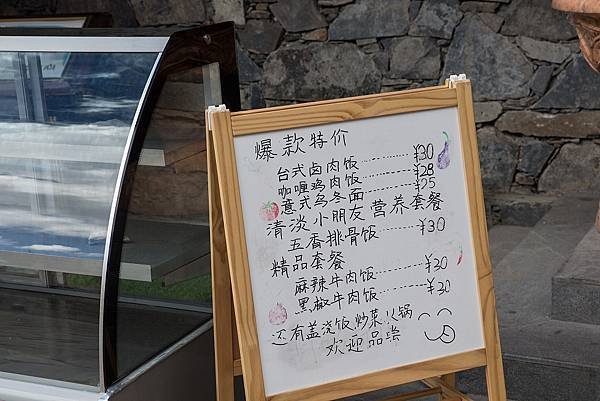 爆款特价
台式卤肉饭............¥30
咖喱鸡肉饭............¥28
意式乌冬面............¥25
清淡小朋友营养套餐
五香排骨饭............¥30
精品套餐
麻辣牛肉饭............¥30
黑椒牛肉饭............¥30
还有盖浇饭炒菜火锅
欢迎品尝